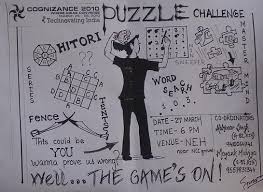 COGNIZANCE 2010
Technovating India
PUZZLE
CHALLENGE
HITORI
MASTER MIND
SERIES
WORD
SEARCH
FENCE
TENTS
DATE - 27 MARCH
TIME - 6 PM
VENUE - NEH
near NCC
CO-ORDINATORS
This could be
YOU
wanna prove us wrong?
Well... THE GAME'S ON!